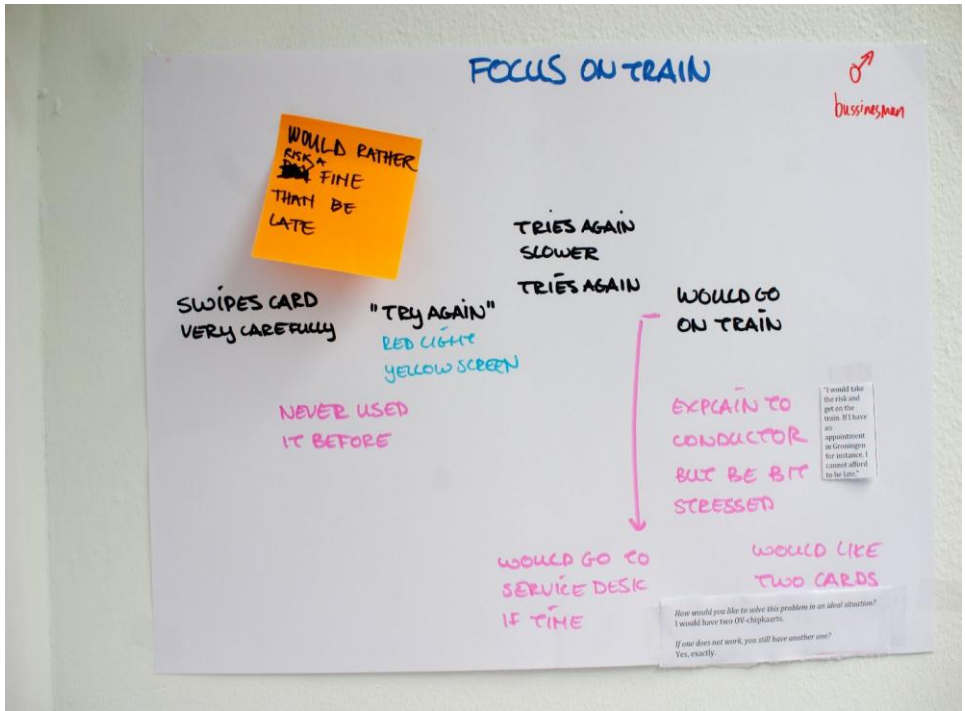 FOCUS ON TRAIN
♂
bussinesman
WOULD RATHER
RISK A
FINE
THAN BE
LATE
SWIPES CARD
VERY CAREFULLY
"TRY AGAIN"
RED LIGHT
YELLOW SCREEN
NEVER USED
IT BEFORE
TRIES AGAIN
SLOWER
TRIES AGAIN
WOULD GO
ON TRAIN
EXPLAIN TO
CONDUCTOR
BUT BE BIT
STRESSED
"I would take
the risk and
get on the
train. If I have
an
appointment
in Groningen
for instance, I
cannot afford
to be late."
WOULD GO TO
SERVICE DESK
IF TIME
WOULD LIKE
TWO CARDS
How would you like to solve this problem in an ideal situation?
I would have two OV-chipkaarts.
If one does not work, you still have another one?
Yes, exactly.